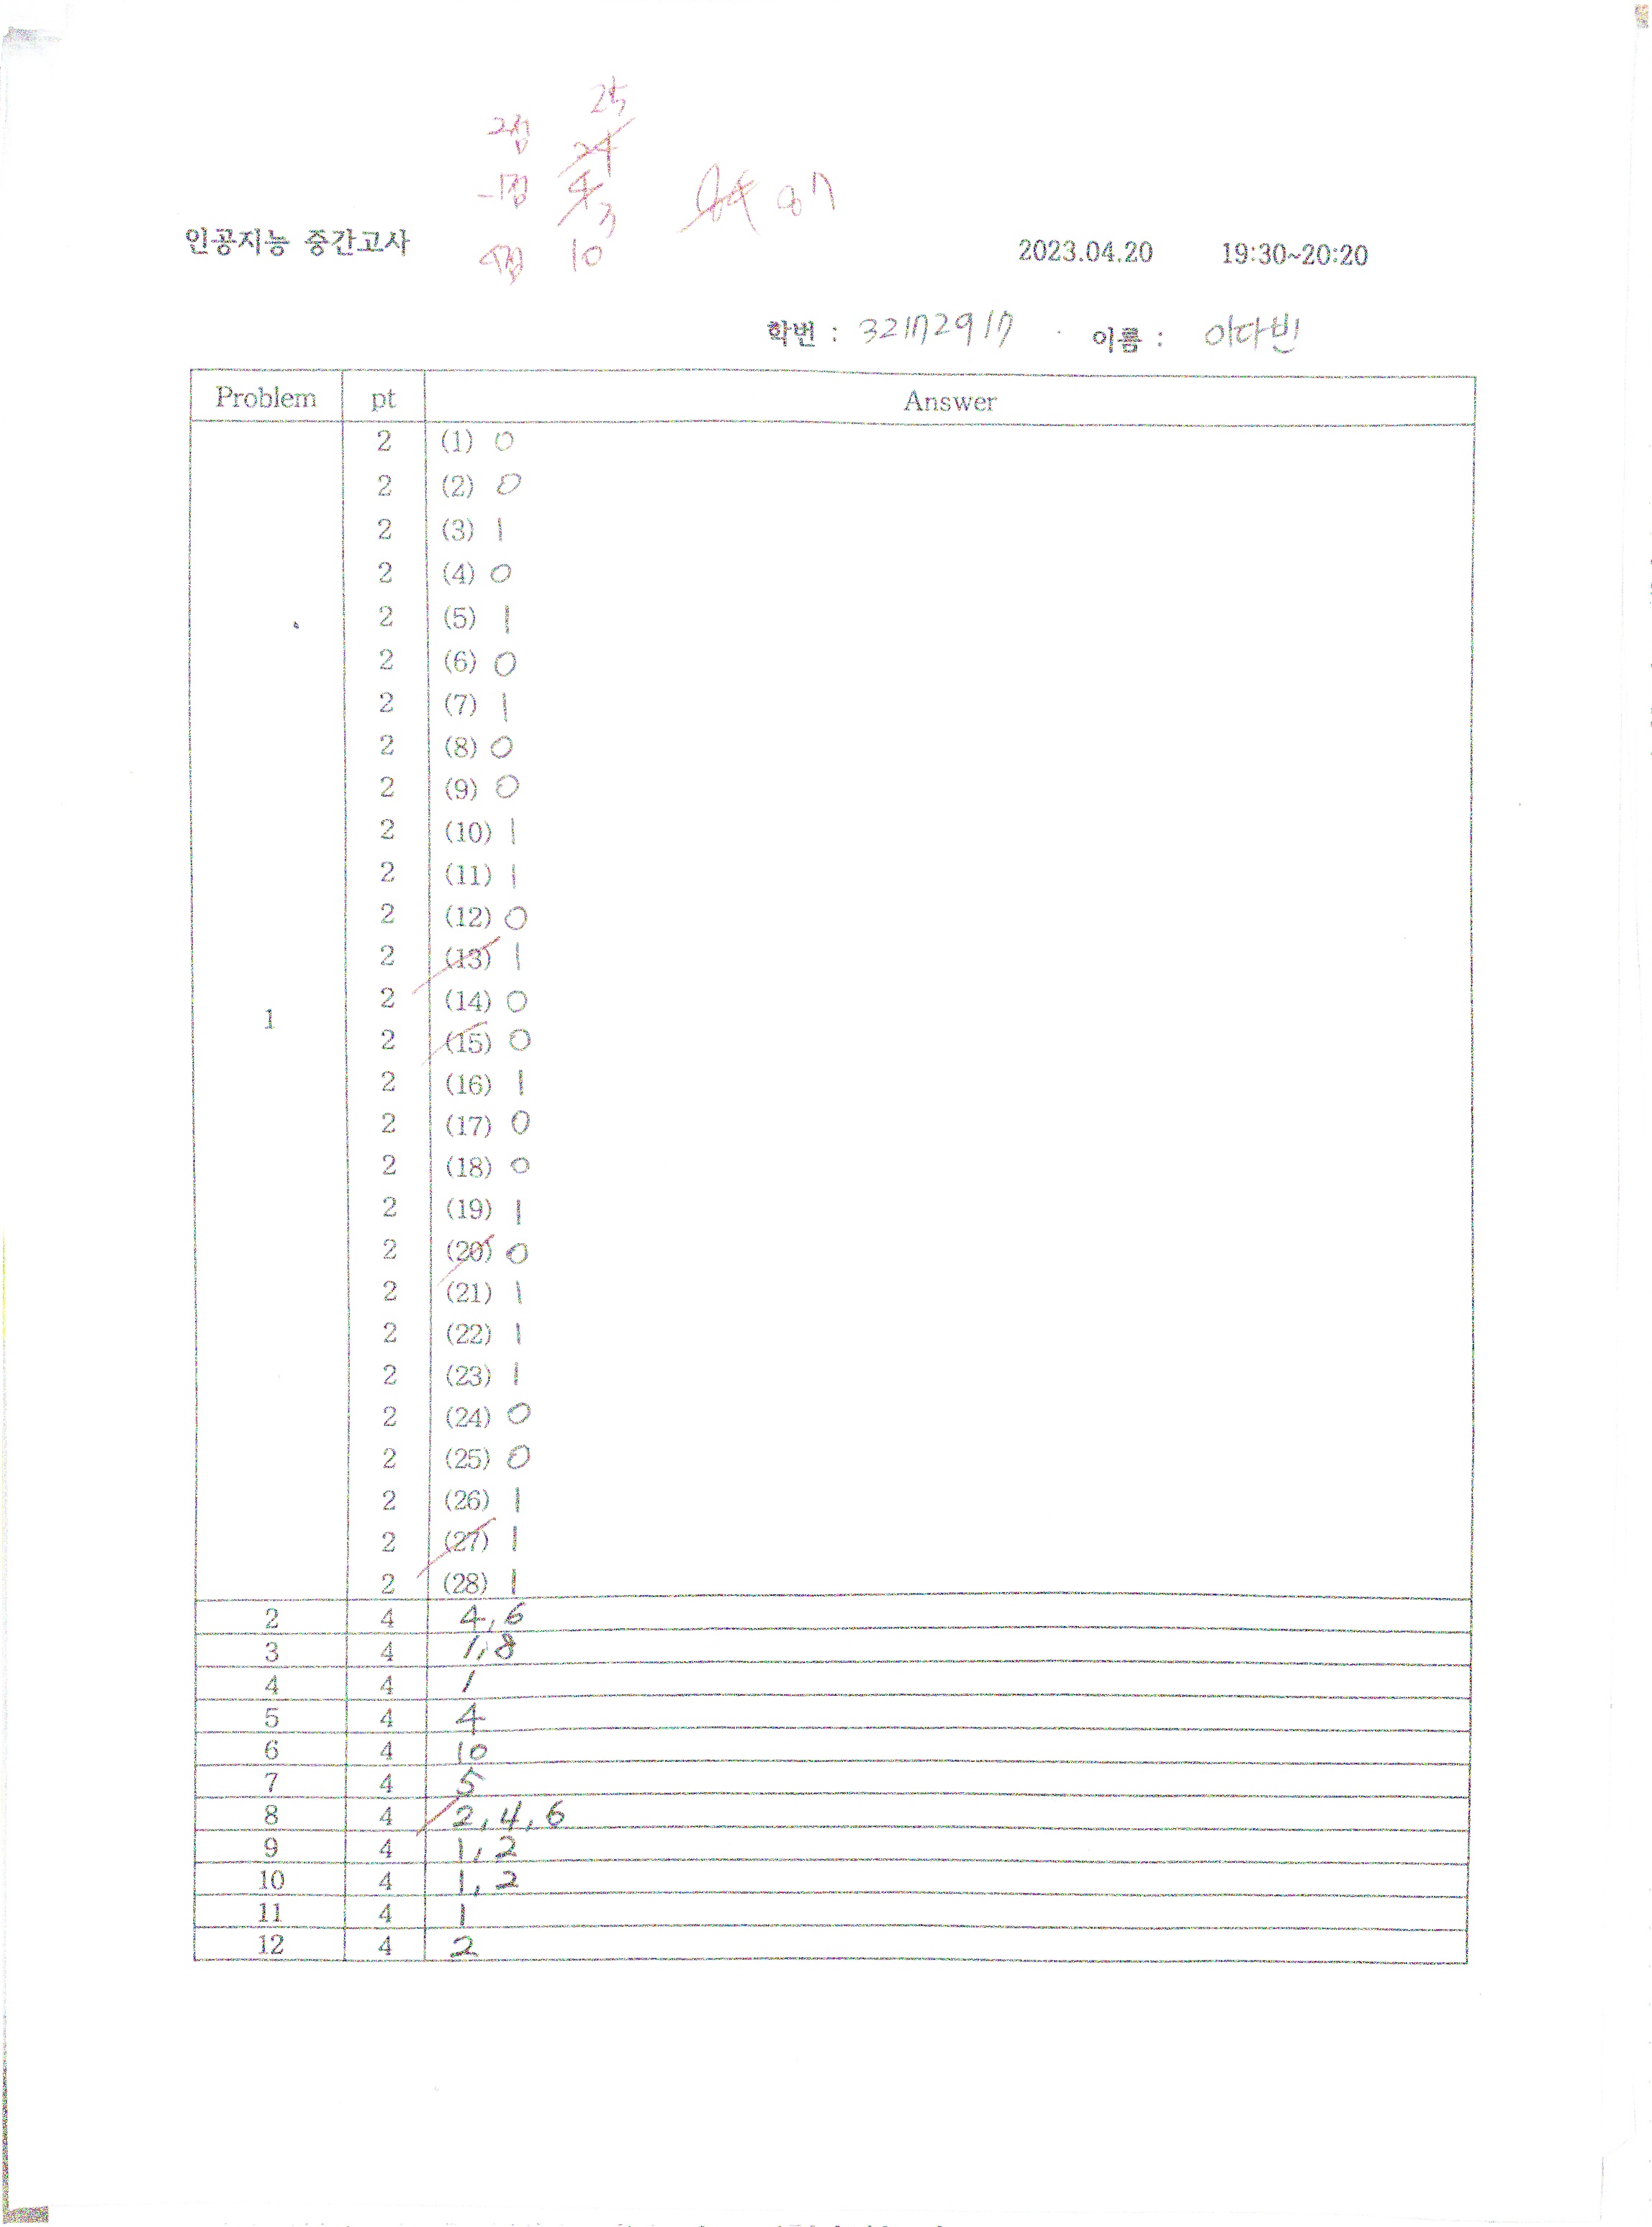 25
2점 24
-1점 4 3
4점 10
87
인공지능 중간고사 2023.04.20 19:30~20:20
학번 : 32172917 이름 : 이다빈
Problem pt Answer
2 (1) 0
2 (2) 0
2 (3) 1
2 (4) 0
2 (5) 1
2 (6) 0
2 (7) 1
2 (8) 0
2 (9) 0
2 (10) 1
2 (11) 1
2 (12) 0
2 (13) 1
2 (14) 0
1
2 (15) 0
2 (16) 1
2 (17) 0
2 (18) 0
2 (19) 1
2 (20) 0
2 (21) 1
2 (22) 1
2 (23) 1
2 (24) 0
2 (25) 0
2 (26) 1
2 (27) 1
2 (28) 1
2 4 4, 6
3 4 1, 8
4 4 1
5 4 4
6 4 10
7 4 5
8 4 2, 4, 6
9 4 1, 2
10 4 1, 2
11 4 1
12 4 2